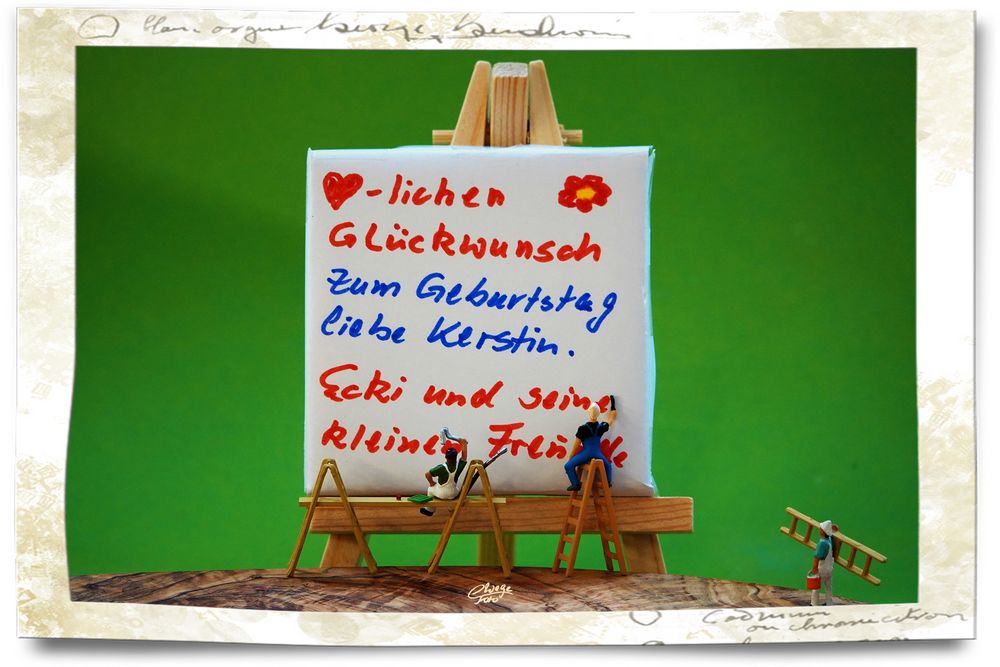 -lichen
Glückwunsch
zum Geburtstag
liebe Kerstin.
Ecki und seine
kleinen Freunde